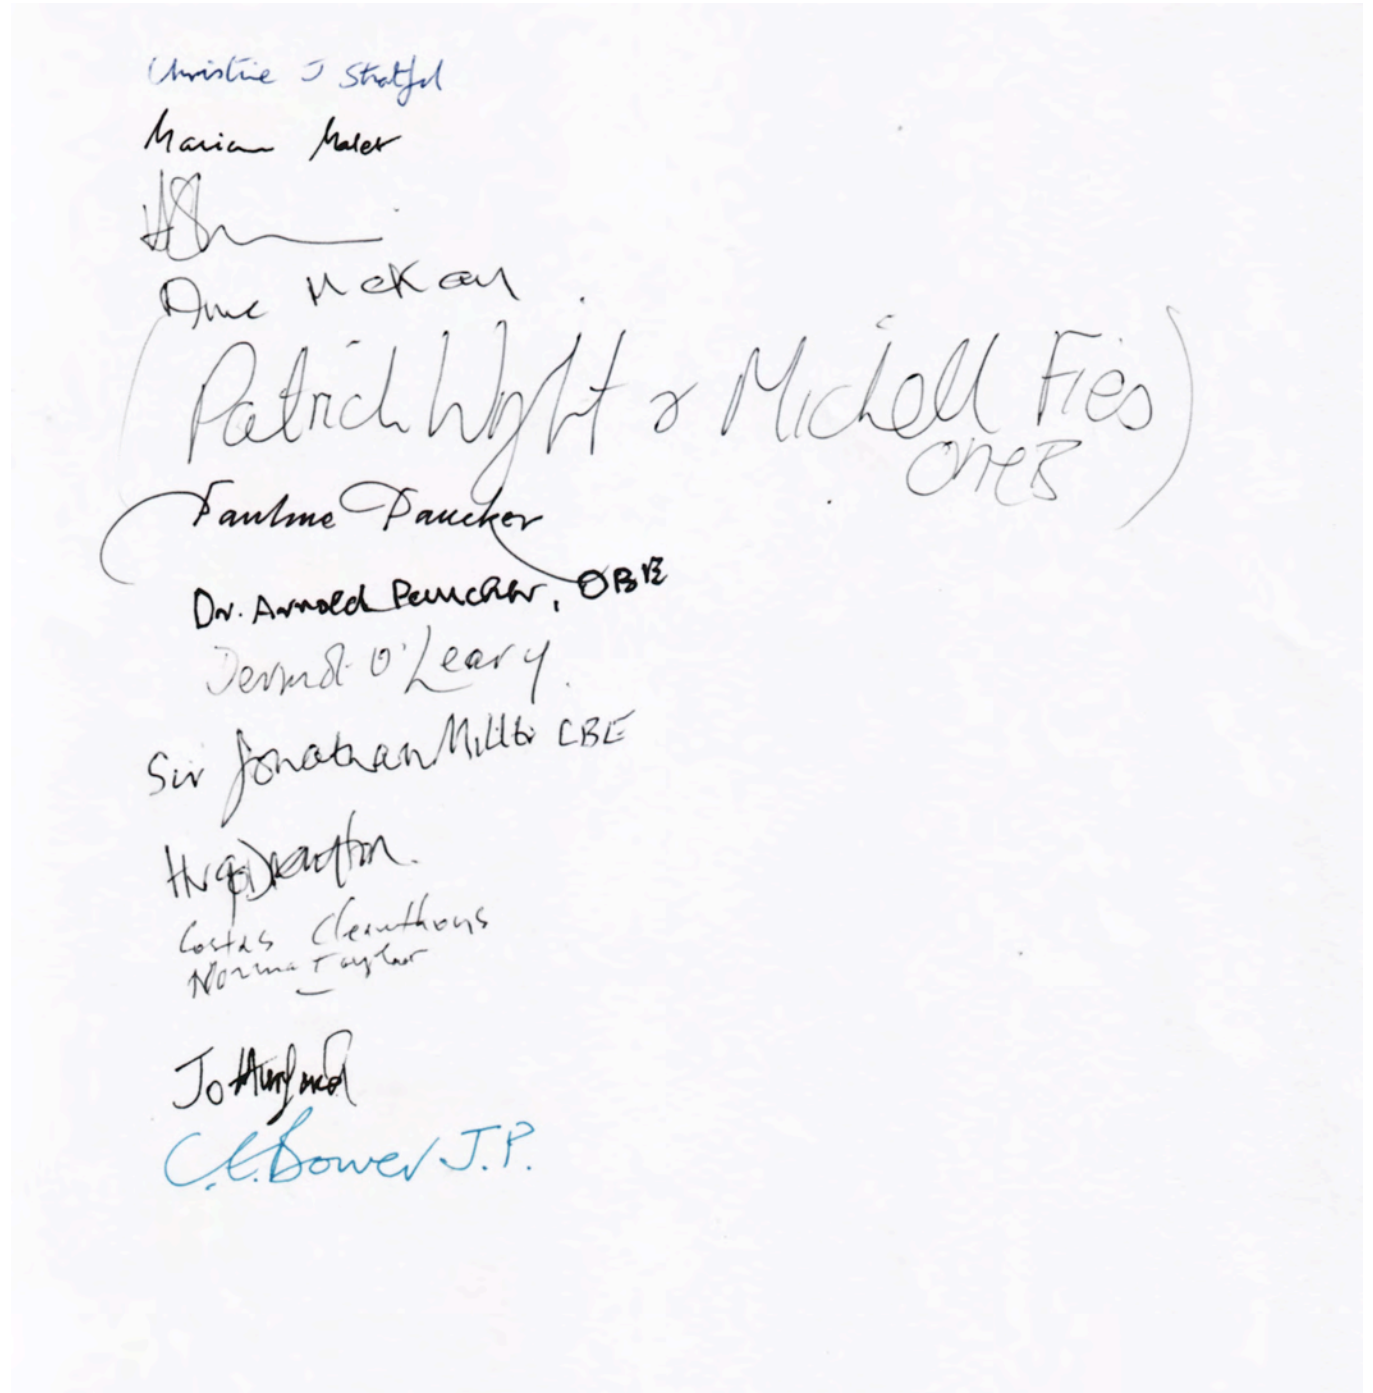 Christine J Stratford
Marian Malet
Anne McKay
(Patrick Wright & Michael
Pauline Paucker
Dr. Arnold Paucker, OBE
Dermot O'Leary.
Sir Jonathan Miller CBE
Costas Cleanthous
Norma Taylor
Jo
C.E. Bower J.P.